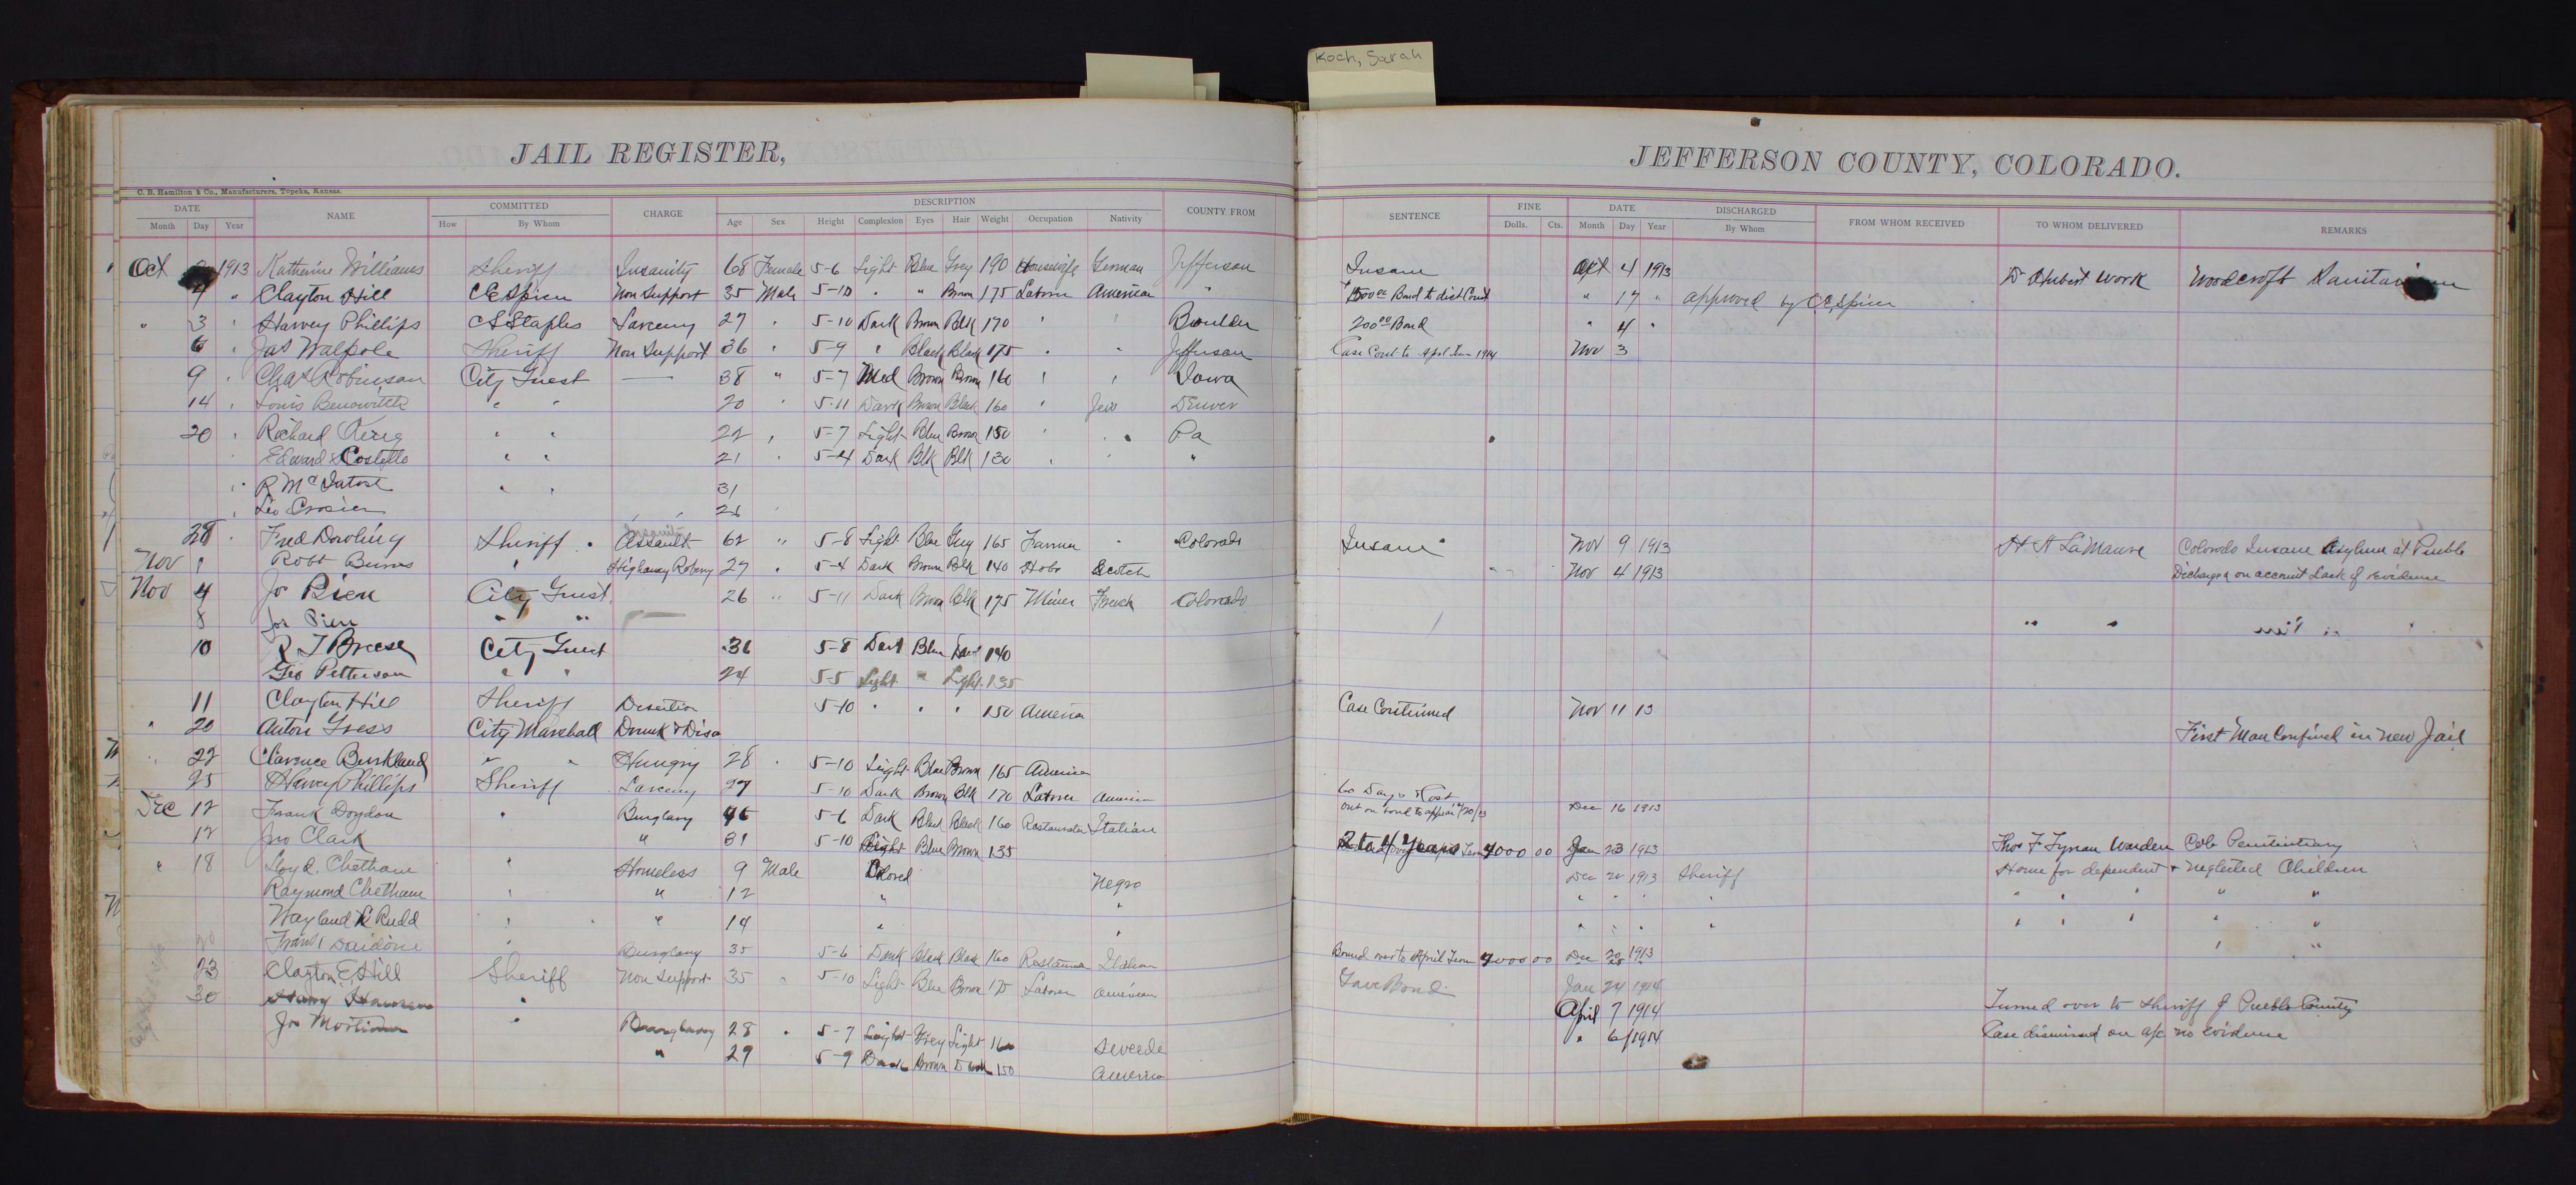 Koch, Sarah
JAIL REGISTER,
JEFFERSON COUNTY, COLORADO.
C. B. Hamilton & Co., Manufacturers, Topeka, Kansas.
DATE NAME COMMITTED CHARGE DESCRIPTION COUNTY FROM SENTENCE FINE DATE DISCHARGED FROM WHOM RECEIVED TO WHOM DELIVERED REMARKS
Month Day Year How By Whom Age Sex Height Complexion Eyes Hair Weight Occupation Nativity Dolls. Cts. Month Day Year By Whom
Oct 1913 Katherine Williams Sheriff Insanity 68 Female 5-6 Light Blue Grey 190 Housewife German Jefferson Insane Oct 4 1913 Dr Hubert Work Woodcroft Sanitarium
4 " Clayton Hill C E Spicer Non Support 35 Male 5-10 " " Brown 175 Laborer American " 500 00 Bond to dist Court " 17 " approved by C. E. Spicer
" 3 " Harvey Phillips C S Staples Larceny 27 " 5-10 Dark Brown Blk 170 " " Boulder 200 00 Bond " 4 "
6 " Jas Walpole Sheriff Non Support 36 " 5-9 " Black Black 175 " " Jefferson Case Cont to Apl Term 1914 Nov 3
9 " Chas Robinson City Guest — 38 " 5-7 Med Brown Brown 160 " " Iowa
14 " Louis " " 20 " 5-11 Dark Brown Black 160 " Jew Denver
20 " Richard " " 22 " 5-7 Light Blue Brown 150 " " Pa
" Edward Costello " " 21 " 5-4 Dark Blk Blk 130 " " "
" R McIntosh " " 31
" Leo Crosier 25
28 " Fred Dowling Sheriff Assault 62 " 5-8 Light Blue Grey 165 Farmer " Colorado Insane Nov 9 1913 H A LaMaure Colorado Insane Asylum at Pueblo
Nov 1 Robt Burns " Highway Robery 27 " 5-4 Dark Brown Blk 140 Hobo Scotch Nov 4 1913 Discharged on account Lack of evidence
Nov 4 Jo Rien City Guest 26 " 5-11 Dark Brown Blk 175 Miner French Colorado
8 Jos " " " "
10 R T Breese City Guest 36 5-8 Dark Blue Dark 140
Geo Petterson " " 24 5-5 Light " Light 135
11 Clayton Hill Sheriff Desertion 5-10 " " " 150 America Case Continued Nov 11 13
" 20 Anton Gress City Marshall Drunk & Diso First Man Confined in New Jail
" 22 Clarence Burkland " " Hungry 28 " 5-10 Light Blue Brown 165 America
25 Harvey Phillips Sheriff Larceny 27 5-10 Dark Brown Blk 170 Laborer American 60 Days & Cost
Dec 12 Frank Doydon " Burglary 5-6 Dark Black Black 160 Restaurater Italian out on bond to appear Dec 16 1913
12 Jno Clark " 31 5-10 Light Blue Brown 135 2 to 4 Years 4000 00 Jan 23 1913 Thos F Tynan Warden Colo Penitentiary
" 18 Loyd Chetham " Homeless 9 Male Colored Negro Dec 20 1913 Sheriff Home for dependent & neglected Children
Raymond Chetham " " 12 " " " " " " " " " " "
Wayland Rudd " " 14 " " " " " " " " " " "
20 Daidone " Burglary 35 5-6 Dark Black Black 160 Restaurater Italian Bound over to April Term 4000 00 Dec 20 1913 " "
23 Clayton E Hill Sheriff Non Support 35 " 5-10 Light Blue Brown 175 Laborer American Gave Bond Jan 24 1914
30 Harry " April 7 1914 Turned over to Sheriff of Pueblo County
Jos " Burglary 28 " 5-7 Light Grey Light 160 Swede " 6/1914 Case dismissed on a/c no evidence
" 29 5-9 Dark Brown Dark 150 America